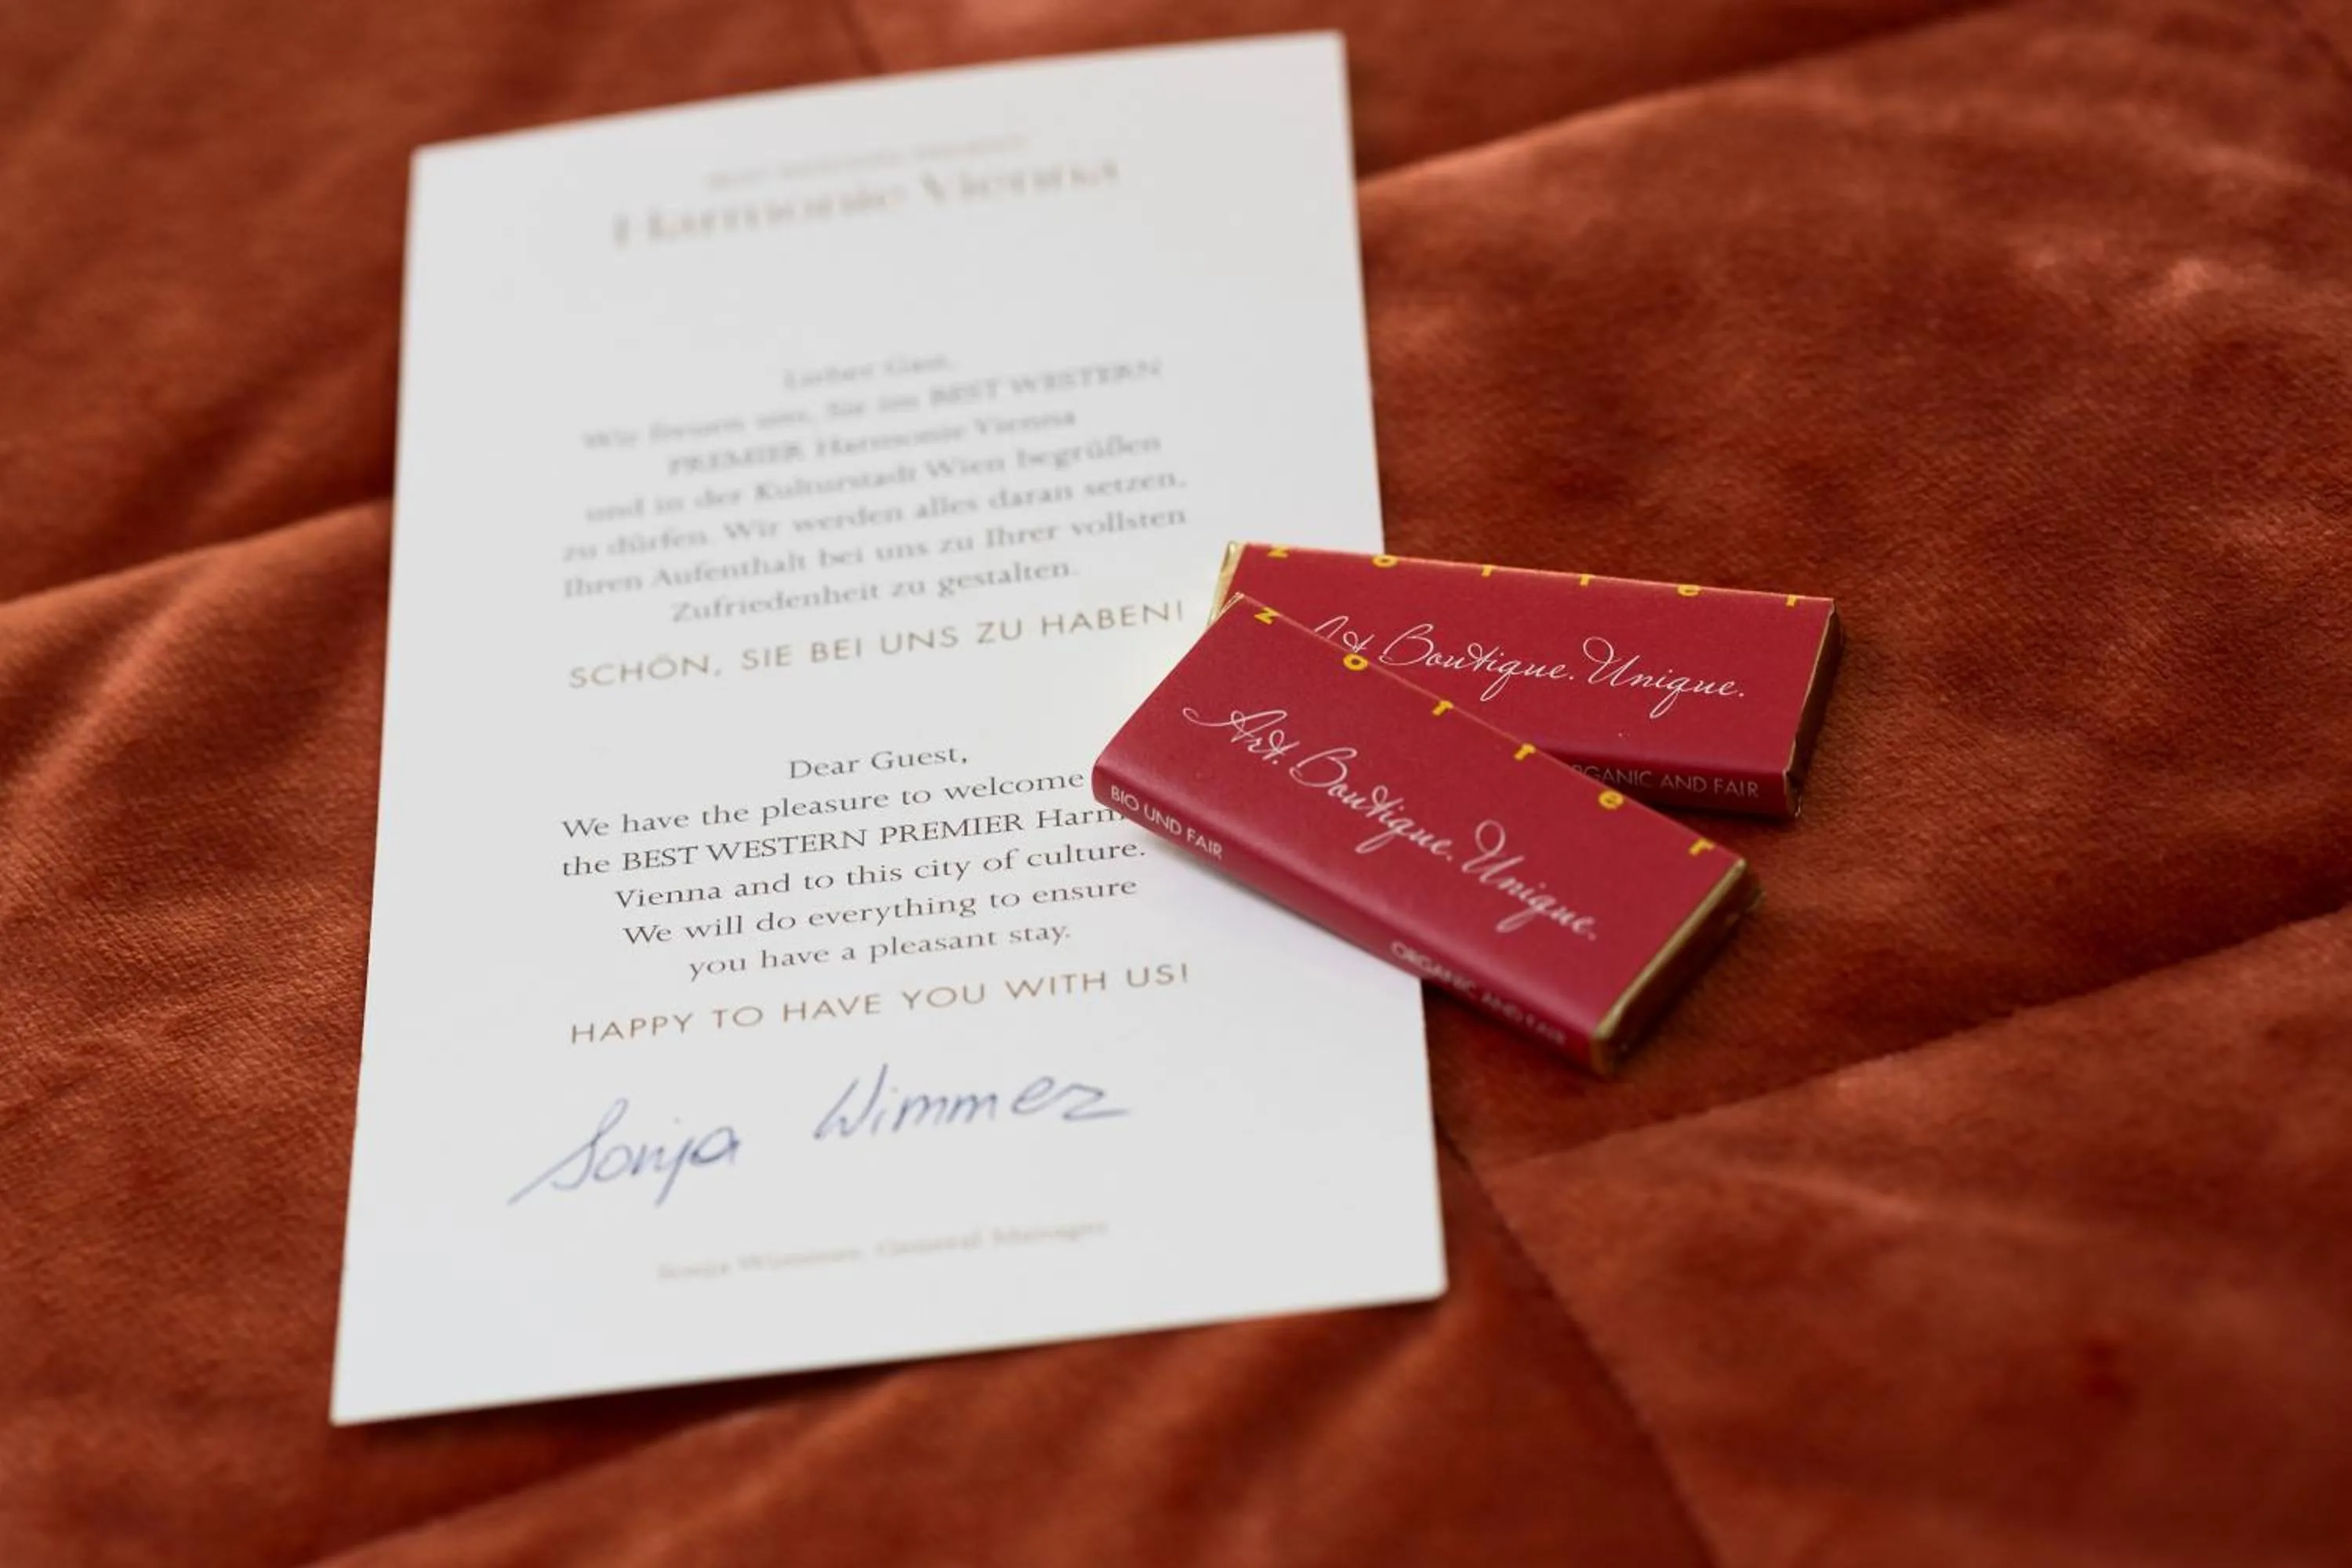 BEST WESTERN PREMIER
Harmonie Vienna
Lieber Gast,
Wir freuen uns, Sie im BEST WESTERN
PREMIER Harmonie Vienna
und in der Kulturstadt Wien begrüßen
zu dürfen. Wir werden alles daran setzen,
Ihren Aufenthalt bei uns zu Ihrer vollsten
Zufriedenheit zu gestalten.
SCHÖN, SIE BEI UNS ZU HABEN!
Dear Guest,
We have the pleasure to welcome
the BEST WESTERN PREMIER Harm
Vienna and to this city of culture.
We will do everything to ensure
you have a pleasant stay.
HAPPY TO HAVE YOU WITH US!
Sonja Wimmer
Sonja Wimmer, General Manager
zotter
Art. Boutique. Unique.
ORGANIC AND FAIR
zotter
Art. Boutique. Unique.
BIO UND FAIR
ORGANIC AND FAIR